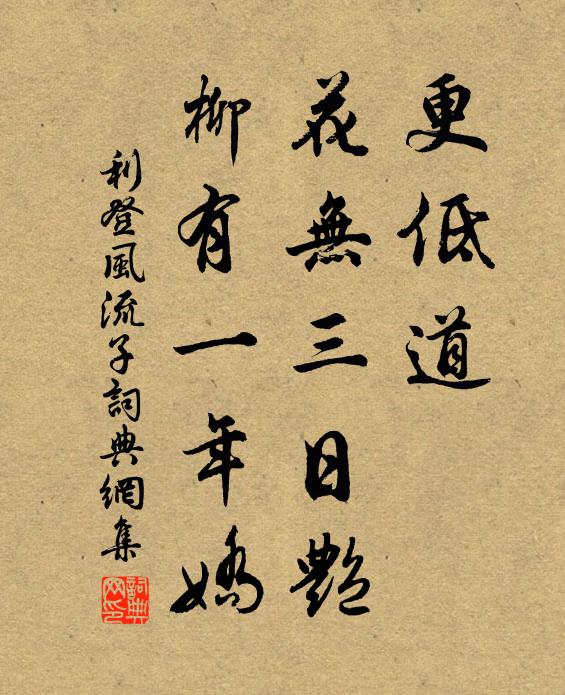 更低道
花無三日艷
柳有一年嬌
利登風流子詞典網集
詞典網印